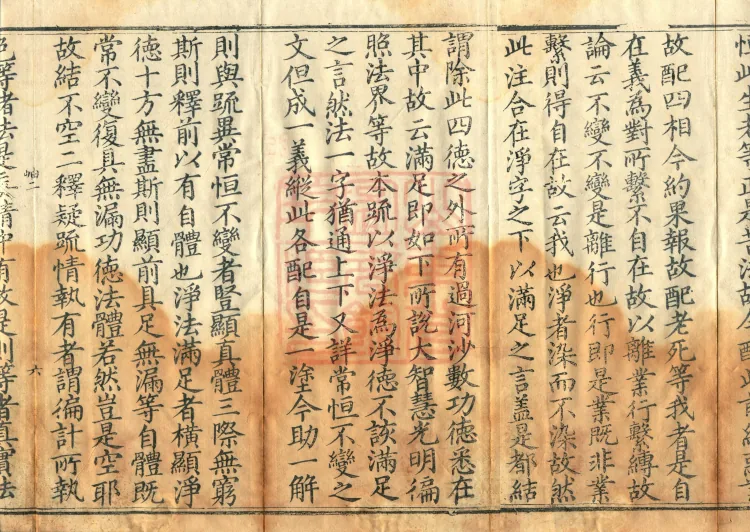 故配四相今約果報故配老死等我者是自
在義為對所繫不自在故以離業行繫縛故
論云不變不變是離行也行即是業既非業
繫則得自在故云我也淨者染而不染故然
此注合在淨字之下以滿足之言盖是都結
謂除此四德之外所有過河沙數功德悉在
其中故云滿足即如下所說大智慧光明徧
照法界等故本䟽以淨法為淨德不該滿足
之言然法一字猶通上下又詳常恒不變之
文但成一義縱此各配自是一塗今助一解
則與䟽異常恒不變者竪顯真體三際無窮
斯則釋前以有自體也淨法滿足者橫顯淨
德十方無盡斯則顯前具足無漏等自體既
常不變復具無漏功德法體若然豈是空耶
故結不空二釋疑䟽情執有者謂徧計所執
岫二
六